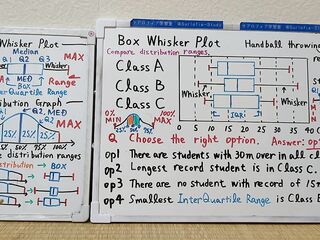 Whisker Plot
Median
Q1 Q2 Q3 MAX
Whisker
MED Range
Box
InterQuartile Range
Distribution Graph
Q1 Q2 Q3
MED
MAX
25% 25% 25% 25%
75% 100%
distribution ranges
→ BOX
Box Whisker Plot Handball throwing
Compare distribution ranges.
Class A
Class B
Class C
Whisker
Whisker
IQR
0% 100%
MIN MAX
25% 50% 75%
0 5 10 15 20 25 30 35 40
Q Choose the right option. Answer: op
op1 There are students with 30m over in all c
op2 Longest record student is in Class C.
op3 There are no student with record of 15m
op4 Smallest InterQuartile Range is Class B